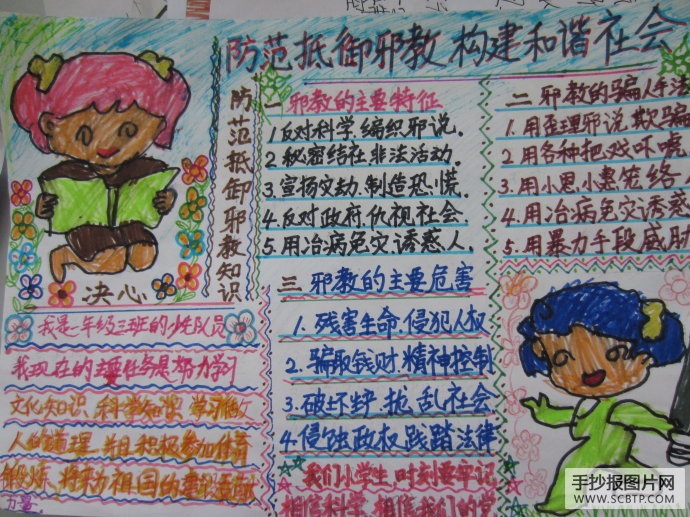 防范抵御邪教 构建和谐社会
防范抵御邪教知识
一 邪教的主要特征
1.反对科学,编织邪说.
2.秘密结在,非法活动.
3.宣扬灾劫.制造恐慌.
4.反对政府,仇视社会.
5.用冶病免灾.诱惑人.
二 邪教的骗人手法
1.用歪理邪说.欺骗
2.用各种把戏吓唬
3.用小恩小惠笼络
4.用冶病免灾诱惑
5.用暴力手段威胁
三 邪教的主要危害
1.残害生命.侵犯人权
2.骗取钱财.精神控制
3.破坏 扰乱社会
4.侵蚀政权践踏法律
我们小学生,时刻要牢记
相信科学 相信我们的党
决心
我是一年级三班的少年队员
我现在的主要任务是努力学习
文化知识、科学知识 学习做
人的道理 并且积极参加体育
锻炼、将来为祖国的 贡献
力量.
手抄报图片网
WWW.SCBTP.COM